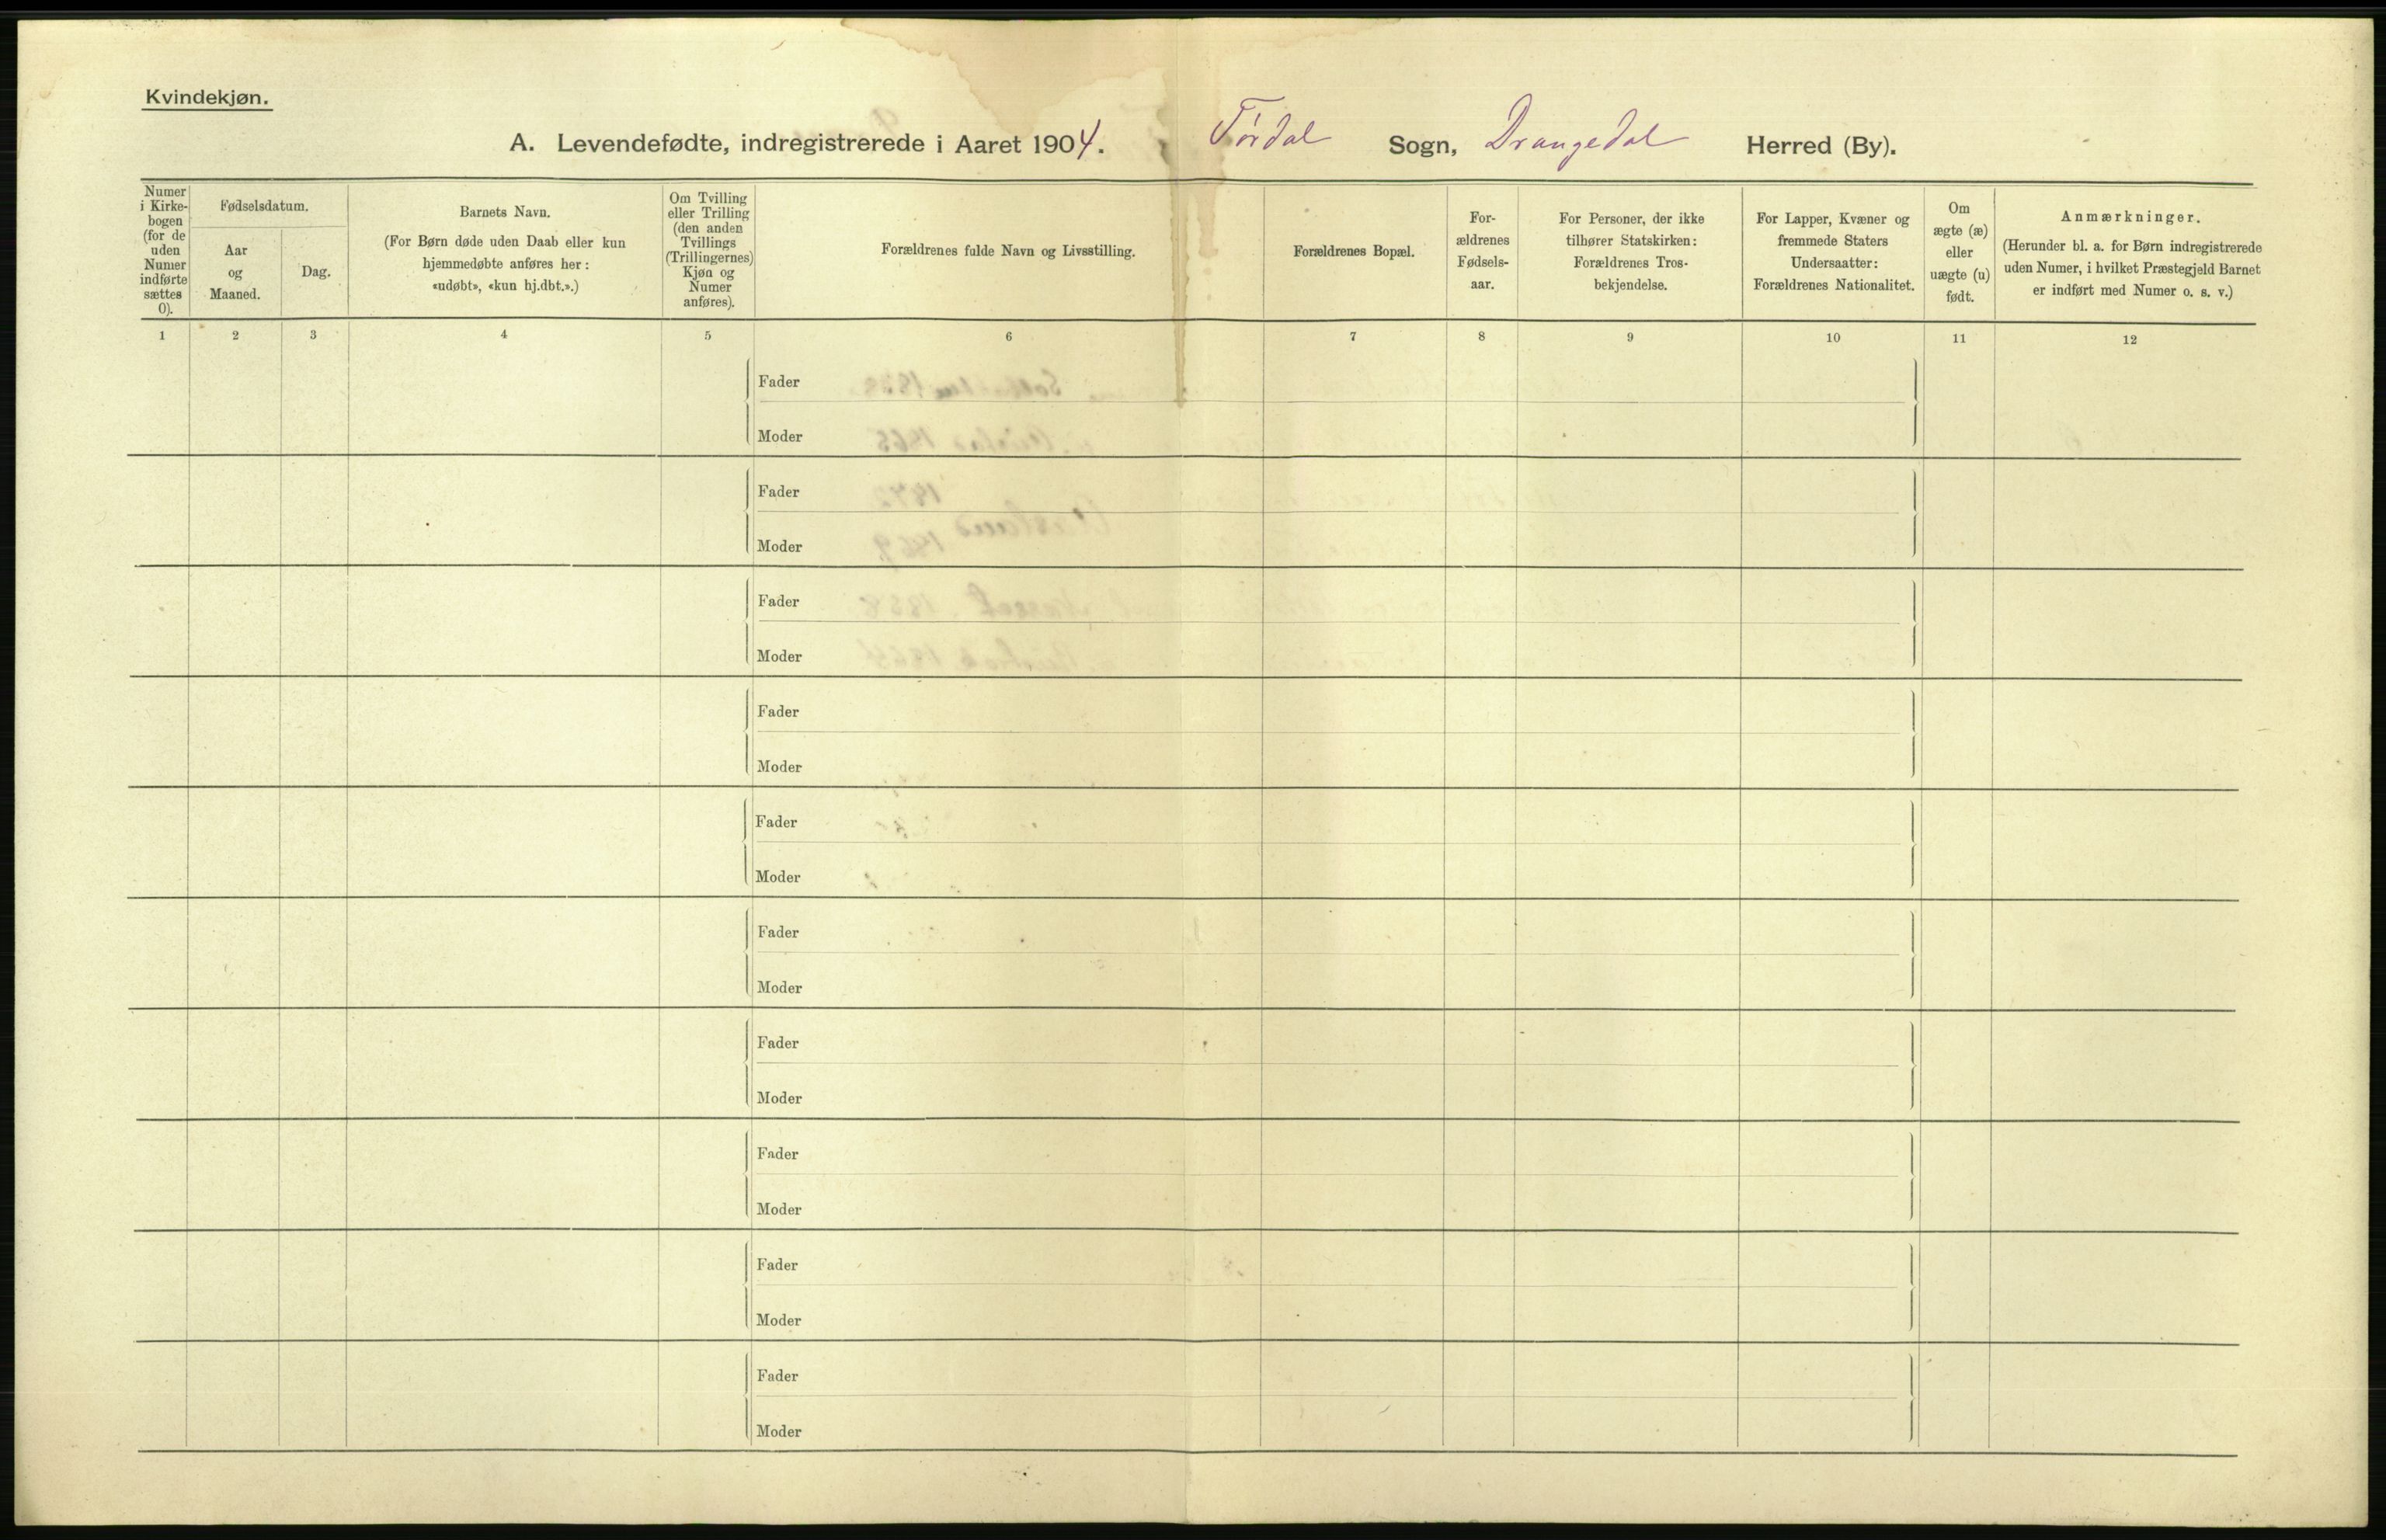 Kvindekjøn.
A. Levendefødte, indregistrerede i Aaret 1904. Tørdal Sogn, Drangedal Herred (By).
Numer
i Kirke-
bogen
(for de
uden
Numer
indførte
sættes
0).
Fødselsdatum.
Aar
og
Maaned.
Dag.
Barnets Navn.
(For Børn døde uden Daab eller kun
hjemmedøbte anføres her:
«udøbt», «kun hj.dbt.».)
Om Tvilling
eller Trilling
(den anden
Tvillings
(Trillingernes)
Kjøn og
Numer
anføres).
Forældrenes fulde Navn og Livsstilling.
Forældrenes Bopæl.
For-
ældrenes
Fødsels-
aar.
For Personer, der ikke
tilhører Statskirken:
Forældrenes Tros-
bekjendelse.
For Lapper, Kvæner og
fremmede Staters
Undersaatter:
Forældrenes Nationalitet.
Om
ægte (æ)
eller
uægte (u)
født.
Anmærkninger.
(Herunder bl. a. for Børn indregistrerede
uden Numer, i hvilket Præstegjeld Barnet
er indført med Numer o. s. v.)
1 2 3 4 5 6 7 8 9 10 11 12
Fader
Moder
Fader
Moder
Fader
Moder
Fader
Moder
Fader
Moder
Fader
Moder
Fader
Moder
Fader
Moder
Fader
Moder
Fader
Moder